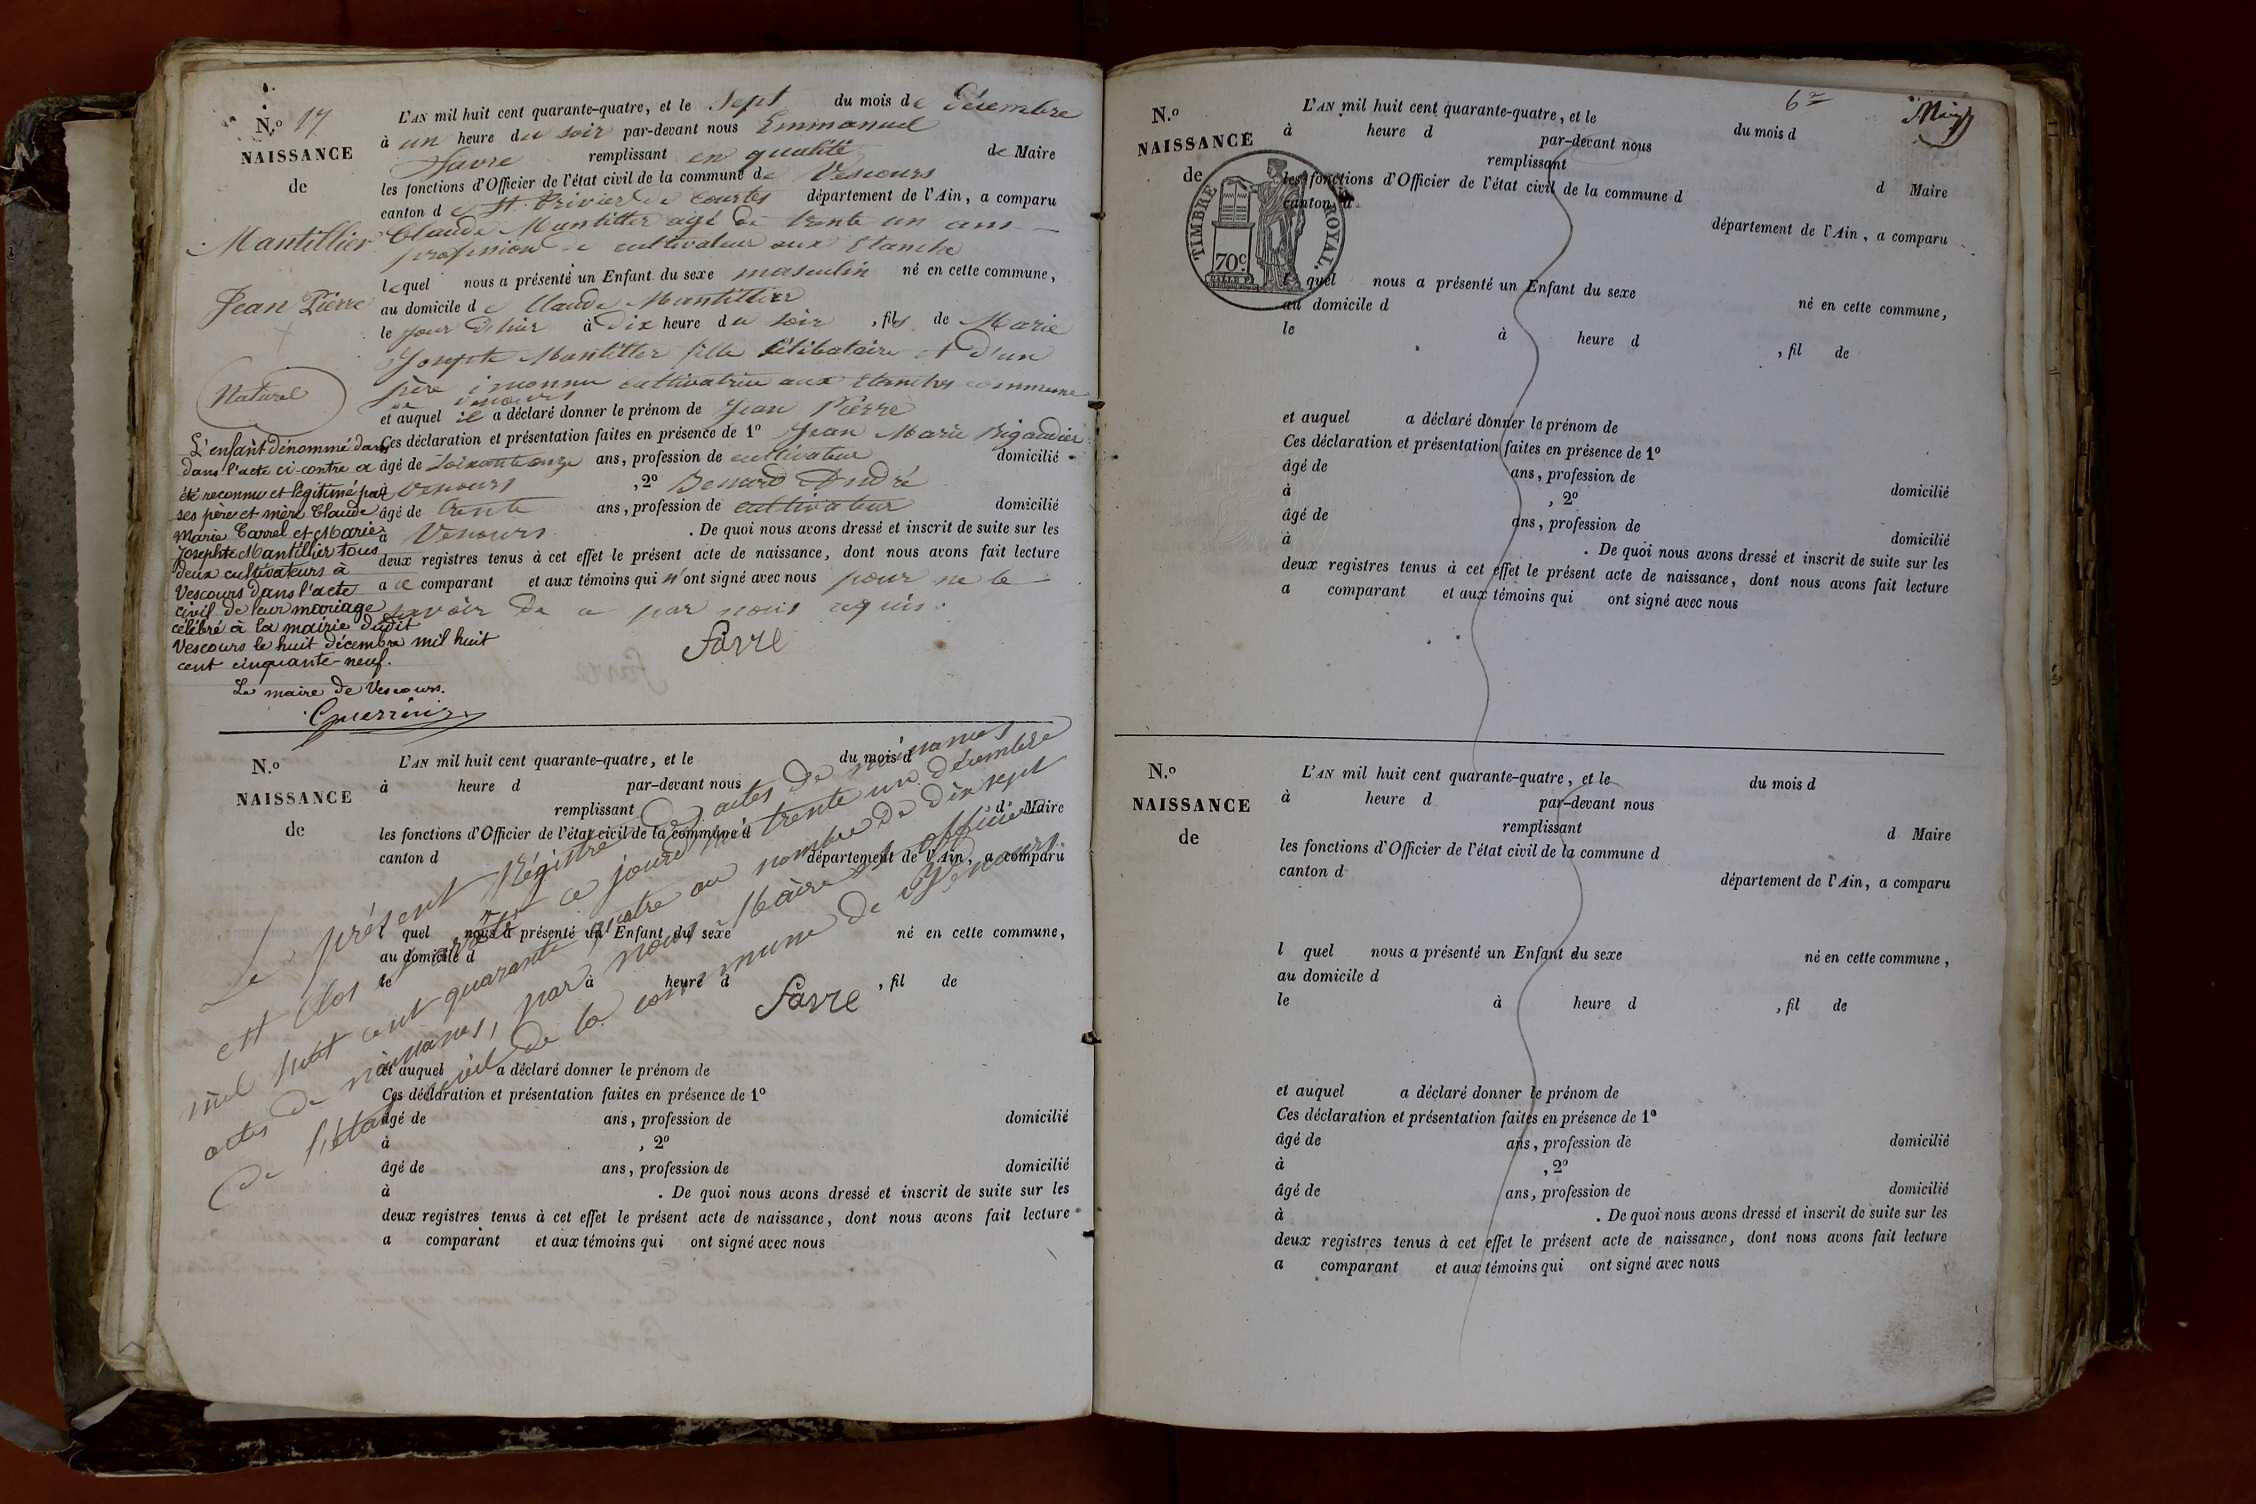 N.º 17
NAISSANCE
de
Mantillier
Jean Pierre
Naturel
L'AN mil huit cent quarante-quatre, et le Sept du mois de Décembre
à un heure du soir par-devant nous Emmanuel
Favre remplissant en qualité de Maire
les fonctions d'Officier de l'état civil de la commune de Vescours
canton de St Trivier de Courtes département de l'Ain, a comparu
Claude Mantillier agé de trente un ans
profession de cultivateur aux Etanche
lequel nous a présenté un Enfant du sexe masculin né en cette commune,
au domicile de Claude Mantillier
le jour d'hier à dix heure du soir , fils de Marie
Josephte Mantillier fille célibataire et d'un
père inconnu cultivatrice aux Etanches commune
de Vescours
et auquel il a déclaré donner le prénom de Jean Pierre
Ces déclaration et présentation faites en présence de 1º Jean Marie Rigaudier
âgé de Soixante onze ans, profession de cultivateur domicilié
à Vescours , 2º Besnard André
âgé de trente ans, profession de cultivateur domicilié
à Vescours . De quoi nous avons dressé et inscrit de suite sur les
deux registres tenus à cet effet le présent acte de naissance, dont nous avons fait lecture
a ce comparant et aux témoins qui n'ont signé avec nous pour ne le
savoir de ce par nous requis.
Favre
L'enfant dénommé dans
dans l'acte ci-contre a
été reconnu et légitimé par
ses père et mère Claude
Marie Carrel et Marie
Josephte Mantillier tous
deux cultivateurs à
Vescours dans l'acte
civil de leur mariage
célébré à la mairie dudit
Vescours le huit décembre mil huit
cent cinquante-neuf.
Le maire de Vescours.
N.º
NAISSANCE
de
L'AN mil huit cent quarante-quatre, et le du mois d
à heure d par-devant nous
remplissant d Maire
les fonctions d'Officier de l'état civil de la commune d
canton d département de l'Ain, a comparu
l quel nous a présenté un Enfant du sexe né en cette commune,
au domicile d
le à heure d , fil de
et auquel a déclaré donner le prénom de
Ces déclaration et présentation faites en présence de 1º
âgé de ans, profession de domicilié
à , 2º
âgé de ans, profession de domicilié
à . De quoi nous avons dressé et inscrit de suite sur les
deux registres tenus à cet effet le présent acte de naissance, dont nous avons fait lecture
a comparant et aux témoins qui ont signé avec nous
Le présent Régistre de actes de naissances
et clos et arrêté ce jourd'hui trente un décembre
mil huit cent quarante quatre au nombre de dix sept
actes de naissances, par nous Maire et officier
de l'état civil de la commune de Vescours
Favre
6
N.º
NAISSANCE
de
TIMBRE ROYAL.
70c
L'AN mil huit cent quarante-quatre, et le du mois d
à heure d par-devant nous
remplissant d Maire
les fonctions d'Officier de l'état civil de la commune d
canton d département de l'Ain, a comparu
l quel nous a présenté un Enfant du sexe né en cette commune,
au domicile d
le à heure d , fil de
et auquel a déclaré donner le prénom de
Ces déclaration et présentation faites en présence de 1º
âgé de ans, profession de domicilié
à , 2º
âgé de ans, profession de domicilié
à . De quoi nous avons dressé et inscrit de suite sur les
deux registres tenus à cet effet le présent acte de naissance, dont nous avons fait lecture
a comparant et aux témoins qui ont signé avec nous
N.º
NAISSANCE
de
L'AN mil huit cent quarante-quatre, et le du mois d
à heure d par-devant nous
remplissant d Maire
les fonctions d'Officier de l'état civil de la commune d
canton d département de l'Ain, a comparu
l quel nous a présenté un Enfant du sexe né en cette commune,
au domicile d
le à heure d , fil de
et auquel a déclaré donner le prénom de
Ces déclaration et présentation faites en présence de 1º
âgé de ans, profession de domicilié
à , 2º
âgé de ans, profession de domicilié
à . De quoi nous avons dressé et inscrit de suite sur les
deux registres tenus à cet effet le présent acte de naissance, dont nous avons fait lecture
a comparant et aux témoins qui ont signé avec nous